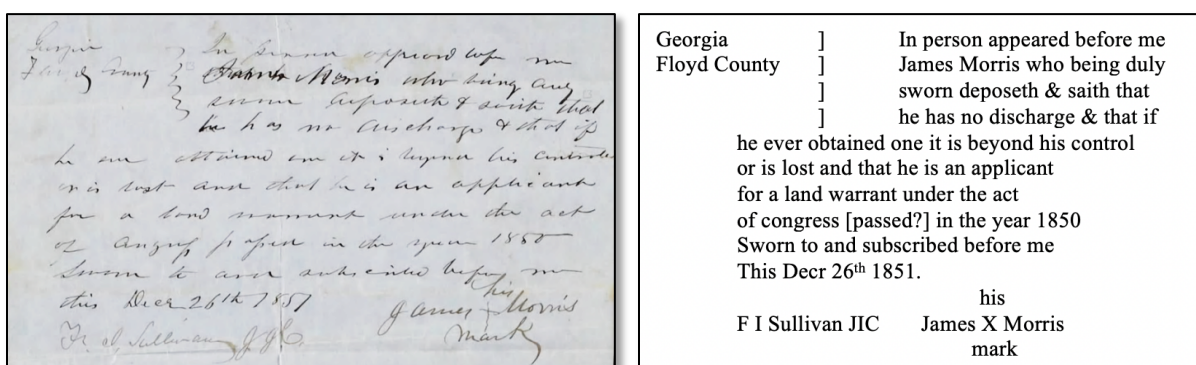 Georgia } In person appeard before me
Floyd County } James Morris who being duly
sworn deposeth & saith that
he has no discharge & that if
he ever obtained one it is beyond his controle
or is lost and that he is an applicant
for a land warrant under the act
of Congress passed in the year 1850
Sworn to and subscribed before me
this Decr 26th 1851
his
James Morris
mark
Sullivan
Georgia ] In person appeared before me
Floyd County ] James Morris who being duly
] sworn deposeth & saith that
] he has no discharge & that if
he ever obtained one it is beyond his control
or is lost and that he is an applicant
for a land warrant under the act
of congress [passed?] in the year 1850
Sworn to and subscribed before me
This Decr 26th 1851.
his
F I Sullivan JIC James X Morris
mark